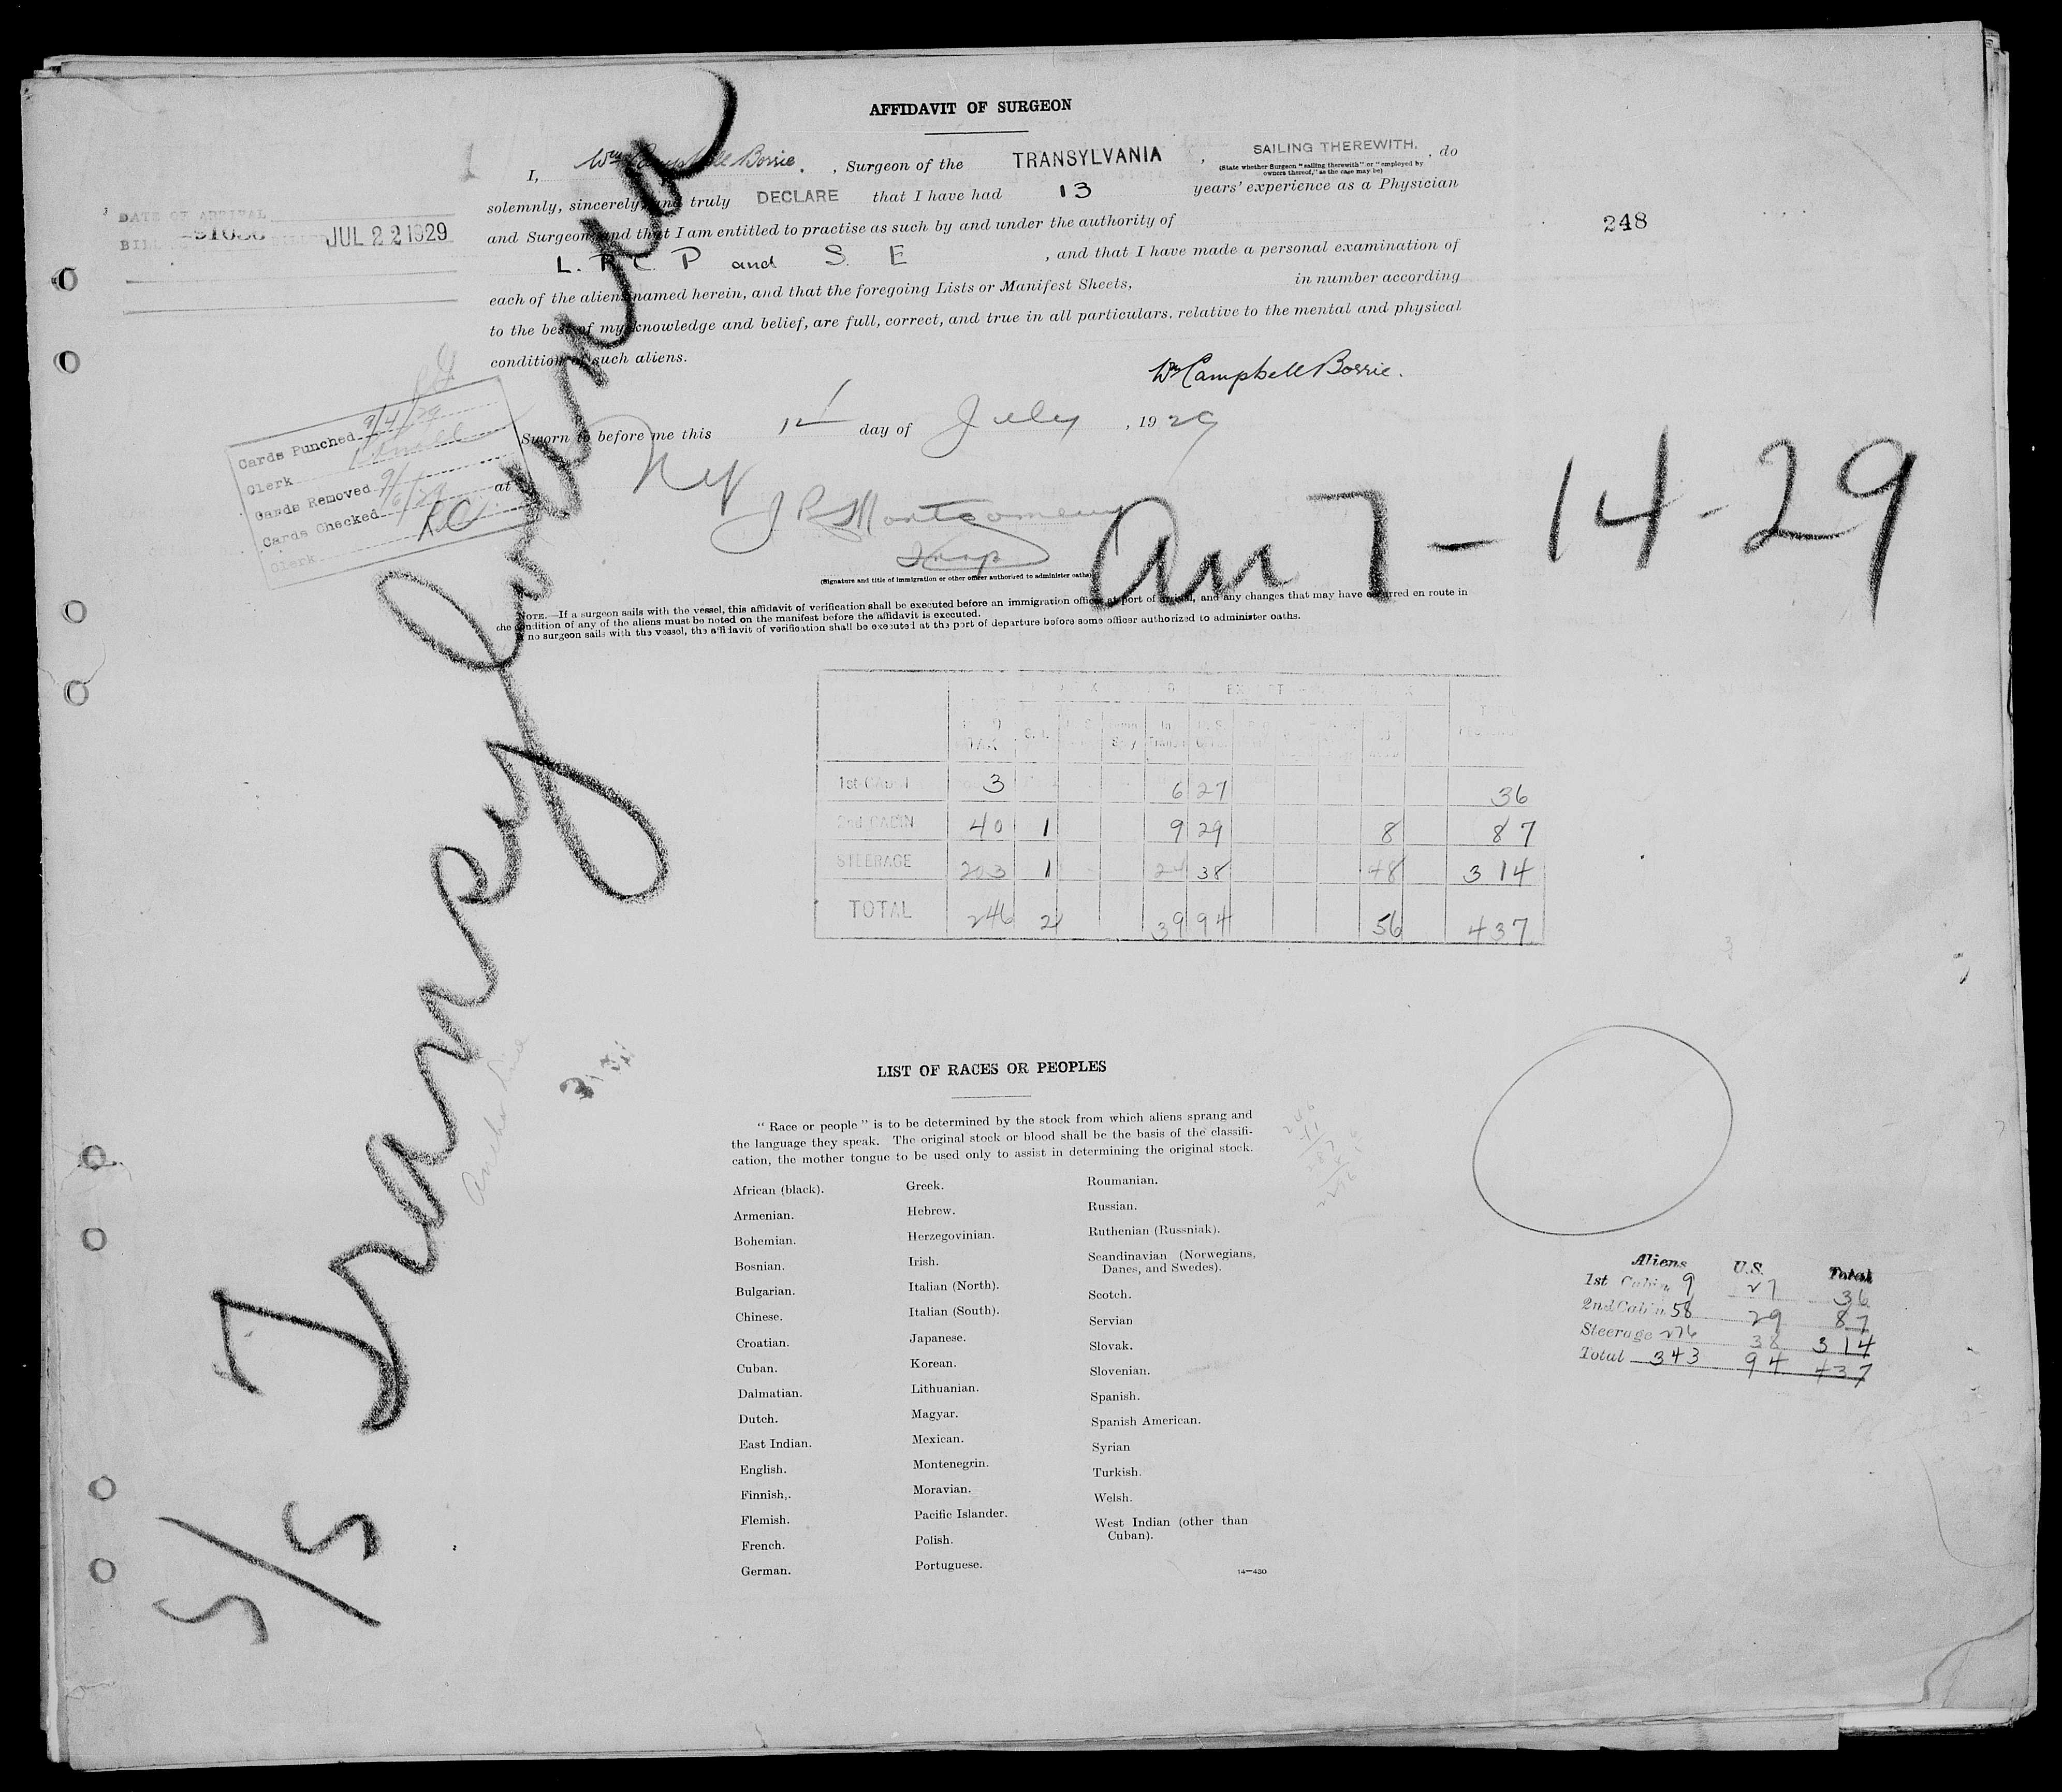 AFFIDAVIT OF SURGEON
I, Wm Campbell Borrie. , Surgeon of the TRANSYLVANIA , SAILING THEREWITH. , do
(State whether Surgeon "sailing therewith" or "employed by
owners thereof," as the case may be)
solemnly, sincerely, and truly DECLARE that I have had 13 years' experience as a Physician
and Surgeon and that I am entitled to practise as such by and under the authority of
L. R C P and S. E , and that I have made a personal examination of
each of the aliens named herein, and that the foregoing Lists or Manifest Sheets, in number according
to the best of my knowledge and belief, are full, correct, and true in all particulars. relative to the mental and physical
condition of such aliens.
Wm Campbell Borrie.
Sworn to before me this day of July , 1929
at NY
J R Montgomery
Insp
(Signature and title of immigration or other officer authorized to administer oaths)
NOTE.—If a surgeon sails with the vessel, this affidavit of verification shall be executed before an immigration officer at port of arrival, and any changes that may have occurred en route in
the condition of any of the aliens must be noted on the manifest before the affidavit is executed.
If no surgeon sails with the vessel, the affidavit of verification shall be executed at the port of departure before some officer authorized to administer oaths.
DATE OF ARRIVAL
BILL JUL 22 1929
248
Cards Punched 9/4/29
Clerk
Cards Removed
Cards Checked
Clerk
S/S Transylvania
Arr 7-14-29
1st CABIN 3 6 27 36
2nd CABIN 40 1 9 29 8 87
STEERAGE 203 1 24 38 48 314
TOTAL 246 2 39 94 56 437
LIST OF RACES OR PEOPLES
" Race or people " is to be determined by the stock from which aliens sprang and
the language they speak. The original stock or blood shall be the basis of the classifi-
cation, the mother tongue to be used only to assist in determining the original stock.
African (black).
Armenian.
Bohemian.
Bosnian.
Bulgarian.
Chinese.
Croatian.
Cuban.
Dalmatian.
Dutch.
East Indian.
English.
Finnish,.
Flemish.
French.
German.
Greek.
Hebrew.
Herzegovinian.
Irish.
Italian (North).
Italian (South).
Japanese.
Korean.
Lithuanian.
Magyar.
Mexican.
Montenegrin.
Moravian.
Pacific Islander.
Polish.
Portuguese.
Roumanian.
Russian.
Ruthenian (Russniak).
Scandinavian (Norwegians,
Danes, and Swedes).
Scotch.
Servian
Slovak.
Slovenian.
Spanish.
Spanish American.
Syrian
Turkish.
Welsh.
West Indian (other than
Cuban).
14—430
Aliens U.S. Total
1st Cabin 9 27 36
2nd Cabin 58 29 87
Steerage 276 38 314
Total 343 94 437